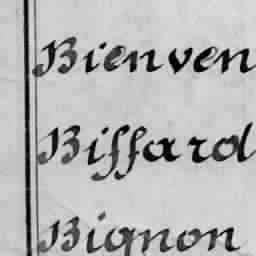 Bienven
Biffard
Bignon